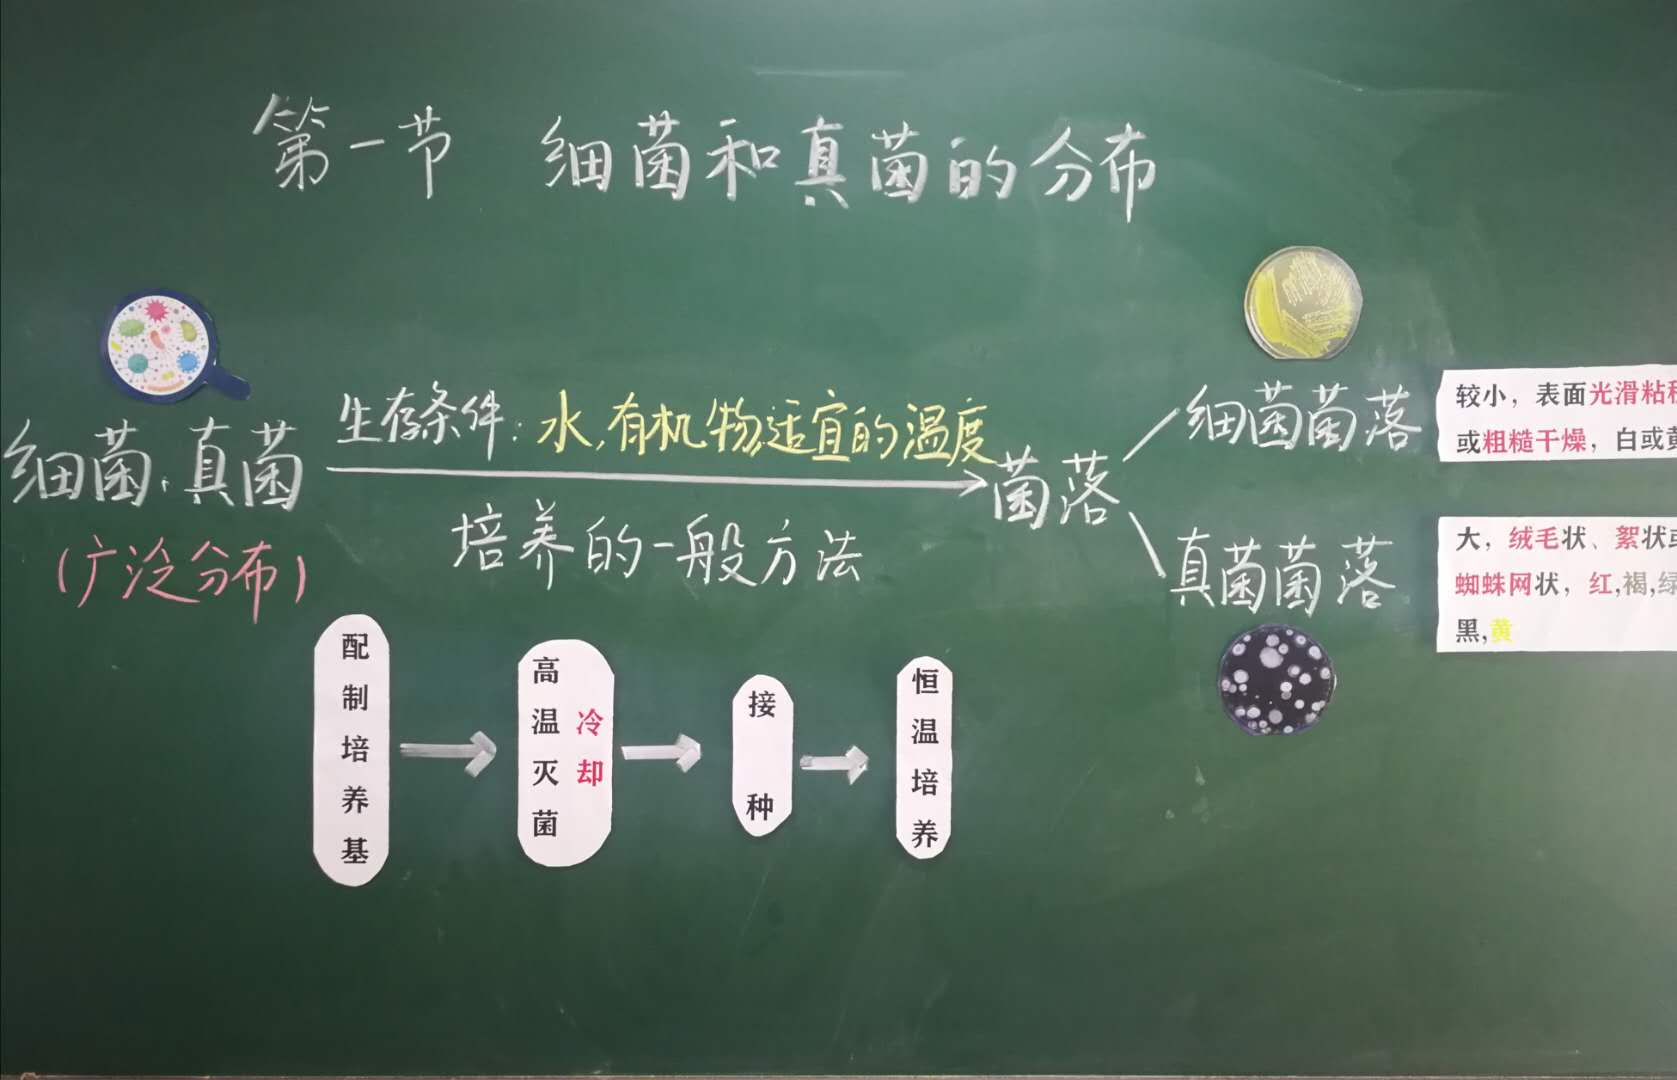 第一节 细菌和真菌的分布
细菌、真菌
(广泛分布)
生存条件:水,有机物,适宜的温度
培养的一般方法
菌落
细菌菌落
较小,表面光滑粘
或粗糙干燥,白或
真菌菌落
大,绒毛状、絮状
蜘蛛网状,红,褐,
黑,黄
配制培养基
高温灭菌
冷却
接种
恒温培养